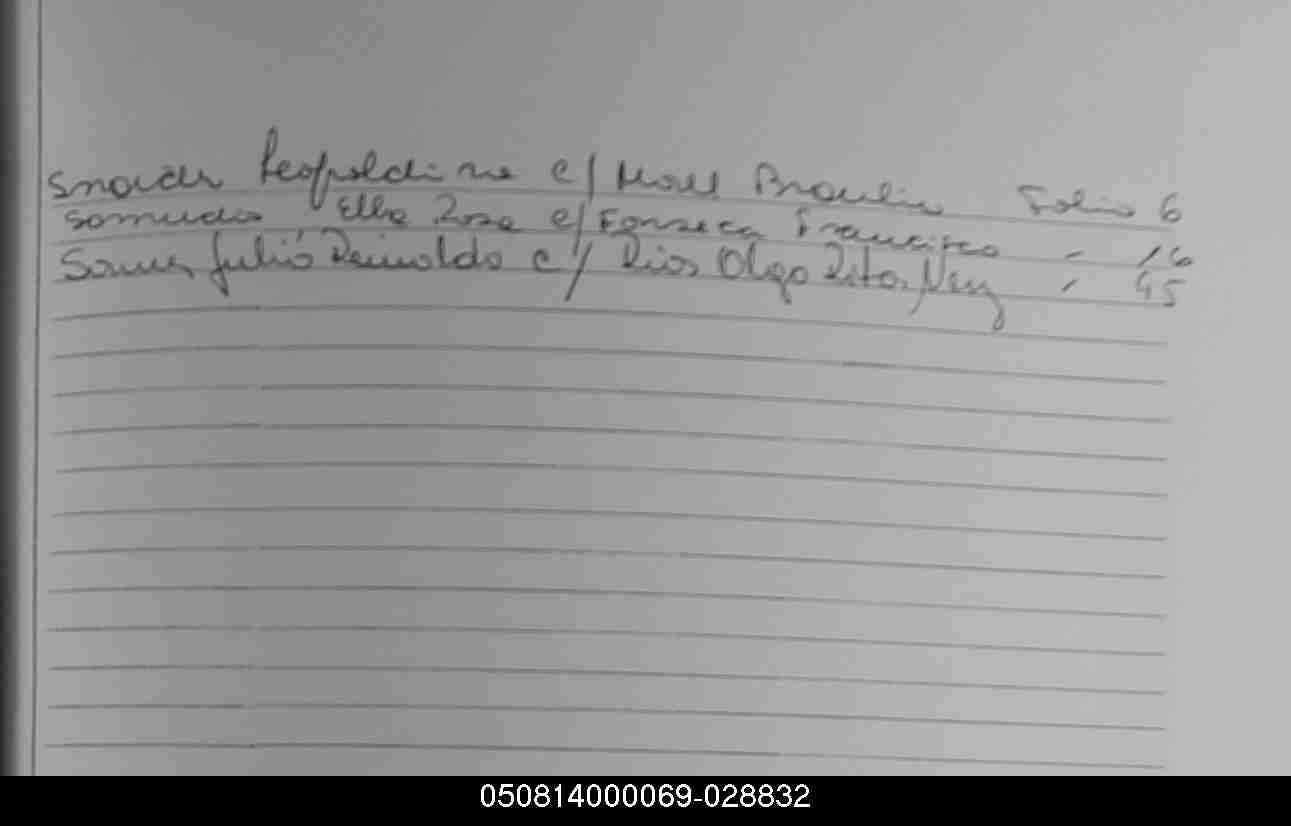 Leopoldina c/ Braulio Folio 6
Samudio Elba Rosa c/ Fonseca Francisco " 16
Julio Reinaldo c/ Rios Olga Rita " 45
050814000069-028832